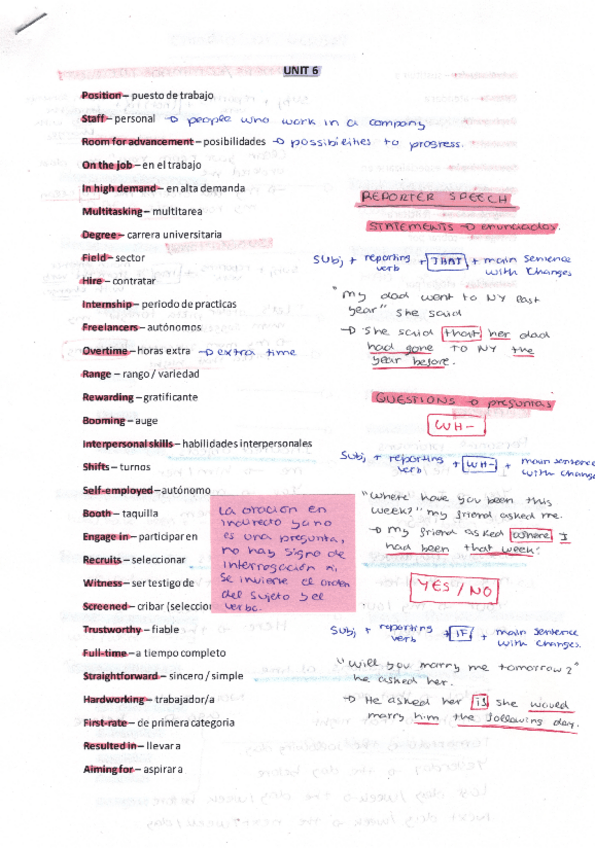 UNIT 6
Position – puesto de trabajo
Staff – personal → people who work in a company
Room for advancement – posibilidades → possibilities to progress.
On the job – en el trabajo
In high demand – en alta demanda
Multitasking – multitarea
Degree – carrera universitaria
Field – sector
Hire – contratar
Internship – periodo de practicas
Freelancers – autónomos
Overtime – horas extra → extra time
Range – rango / variedad
Rewarding – gratificante
Booming – auge
Interpersonal skills – habilidades interpersonales
Shifts – turnos
Self-employed – autónomo
Booth – taquilla
Engage in – participar en
Recruits – seleccionar
Witness – ser testigo de
Screened – cribar (seleccior
Trustworthy – fiable
Full-time – a tiempo completo
Straightforward – sincero / simple
Hardworking – trabajador/a
First-rate – de primera categoria
Resulted in – llevar a
Aiming for – aspirar a
La oración en
indirecto ya no
es una pregunta,
no hay signo de
interrogación ni
se invierte el orden
del sujeto y el
verbo.
REPORTER SPEECH
STATEMENTS → enunciados.
Subj + reporting verb + THAT + main sentence with changes
"My dad went to NY last
year" she said
→ She said that her dad
had gone TO NY the
year before.
QUESTIONS → preguntas
WH-
Subj + reporting verb + WH- + main sentence with change
"Where have you been this
week?" my friend asked me.
→ My friend asked where I
had been that week.
YES / NO
Subj + reporting verb + IF + main sentence with changes.
"Will you marry me tomorrow?"
he asked her.
→ He asked her if she would
marry him the following day.